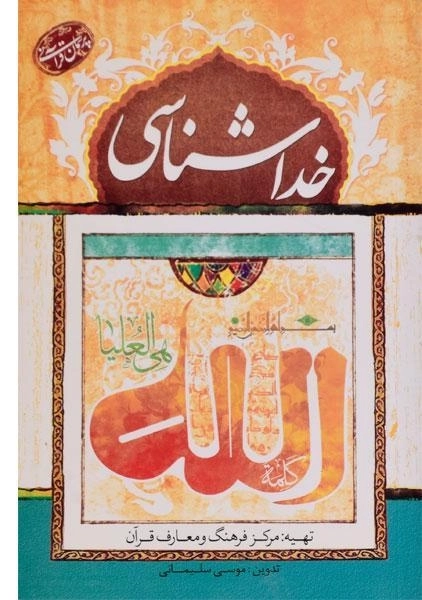 خداشناسی
الله
هی العلیا
کلمة
تهیه: مرکز فرهنگ و معارف قرآن
تدوین: موسی سلیمانی